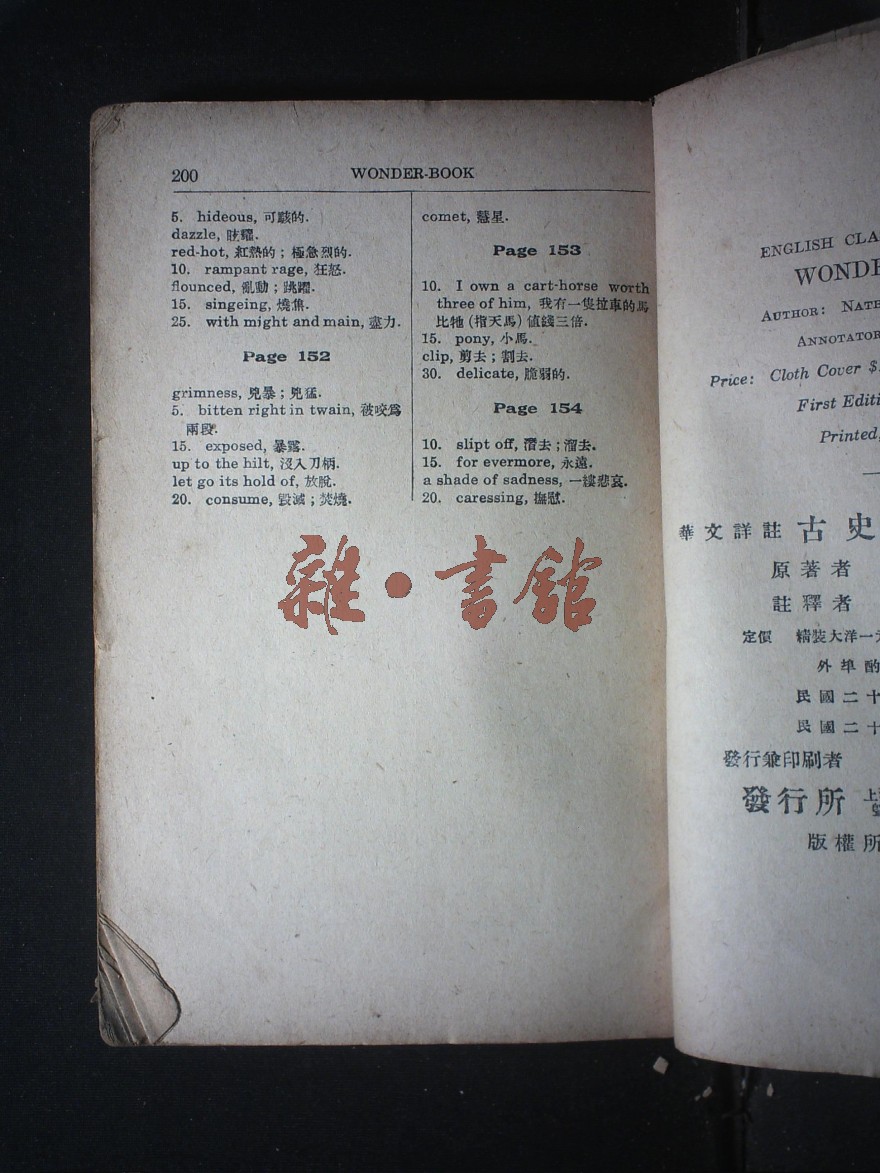 200 WONDER-BOOK
5. hideous, 可駭的.
dazzle, 眩耀.
red-hot, 紅熱的；極急烈的.
10. rampant rage, 狂怒.
flounced, 亂動；跳躍.
15. singeing, 燒焦.
25. with might and main, 盡力.
Page 152
grimness, 兇暴；兇猛.
5. bitten right in twain, 被咬爲
兩段.
15. exposed, 暴露.
up to the hilt, 沒入刀柄.
let go its hold of, 放脫.
20. consume, 毀滅；焚燒.
comet, 彗星.
Page 153
10. I own a cart-horse worth
three of him, 我有一隻拉車的馬
比牠 (指天馬) 値錢三倍.
15. pony, 小馬.
clip, 剪去；割去.
30. delicate, 脆弱的.
Page 154
10. slipt off, 潛去；溜去.
15. for evermore, 永遠.
a shade of sadness, 一縷悲哀.
20. caressing, 撫慰.
雜·書館
ENGLISH CLA
WONDE
AUTHOR: NATH
ANNOTATOR
Price: Cloth Cover $
First Editi
Printed,
華文詳註 古史
原著者
註釋者
定價 精裝大洋一元
外埠酌
民國二十
民國二十
發行兼印刷者
發行所 上
版權所